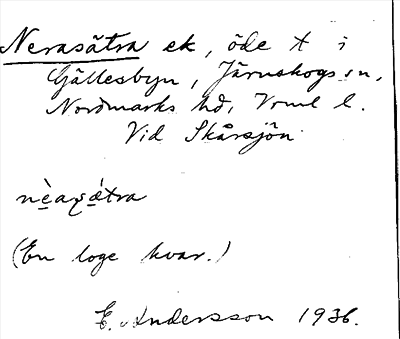 Nerasätra ek, öde t i
Gällesbyn, Järnskogs sn,
Nordmarks hd, Vrml l.
Vid Skårsjön
(En loge kvar.)
E. Andersson 1936.